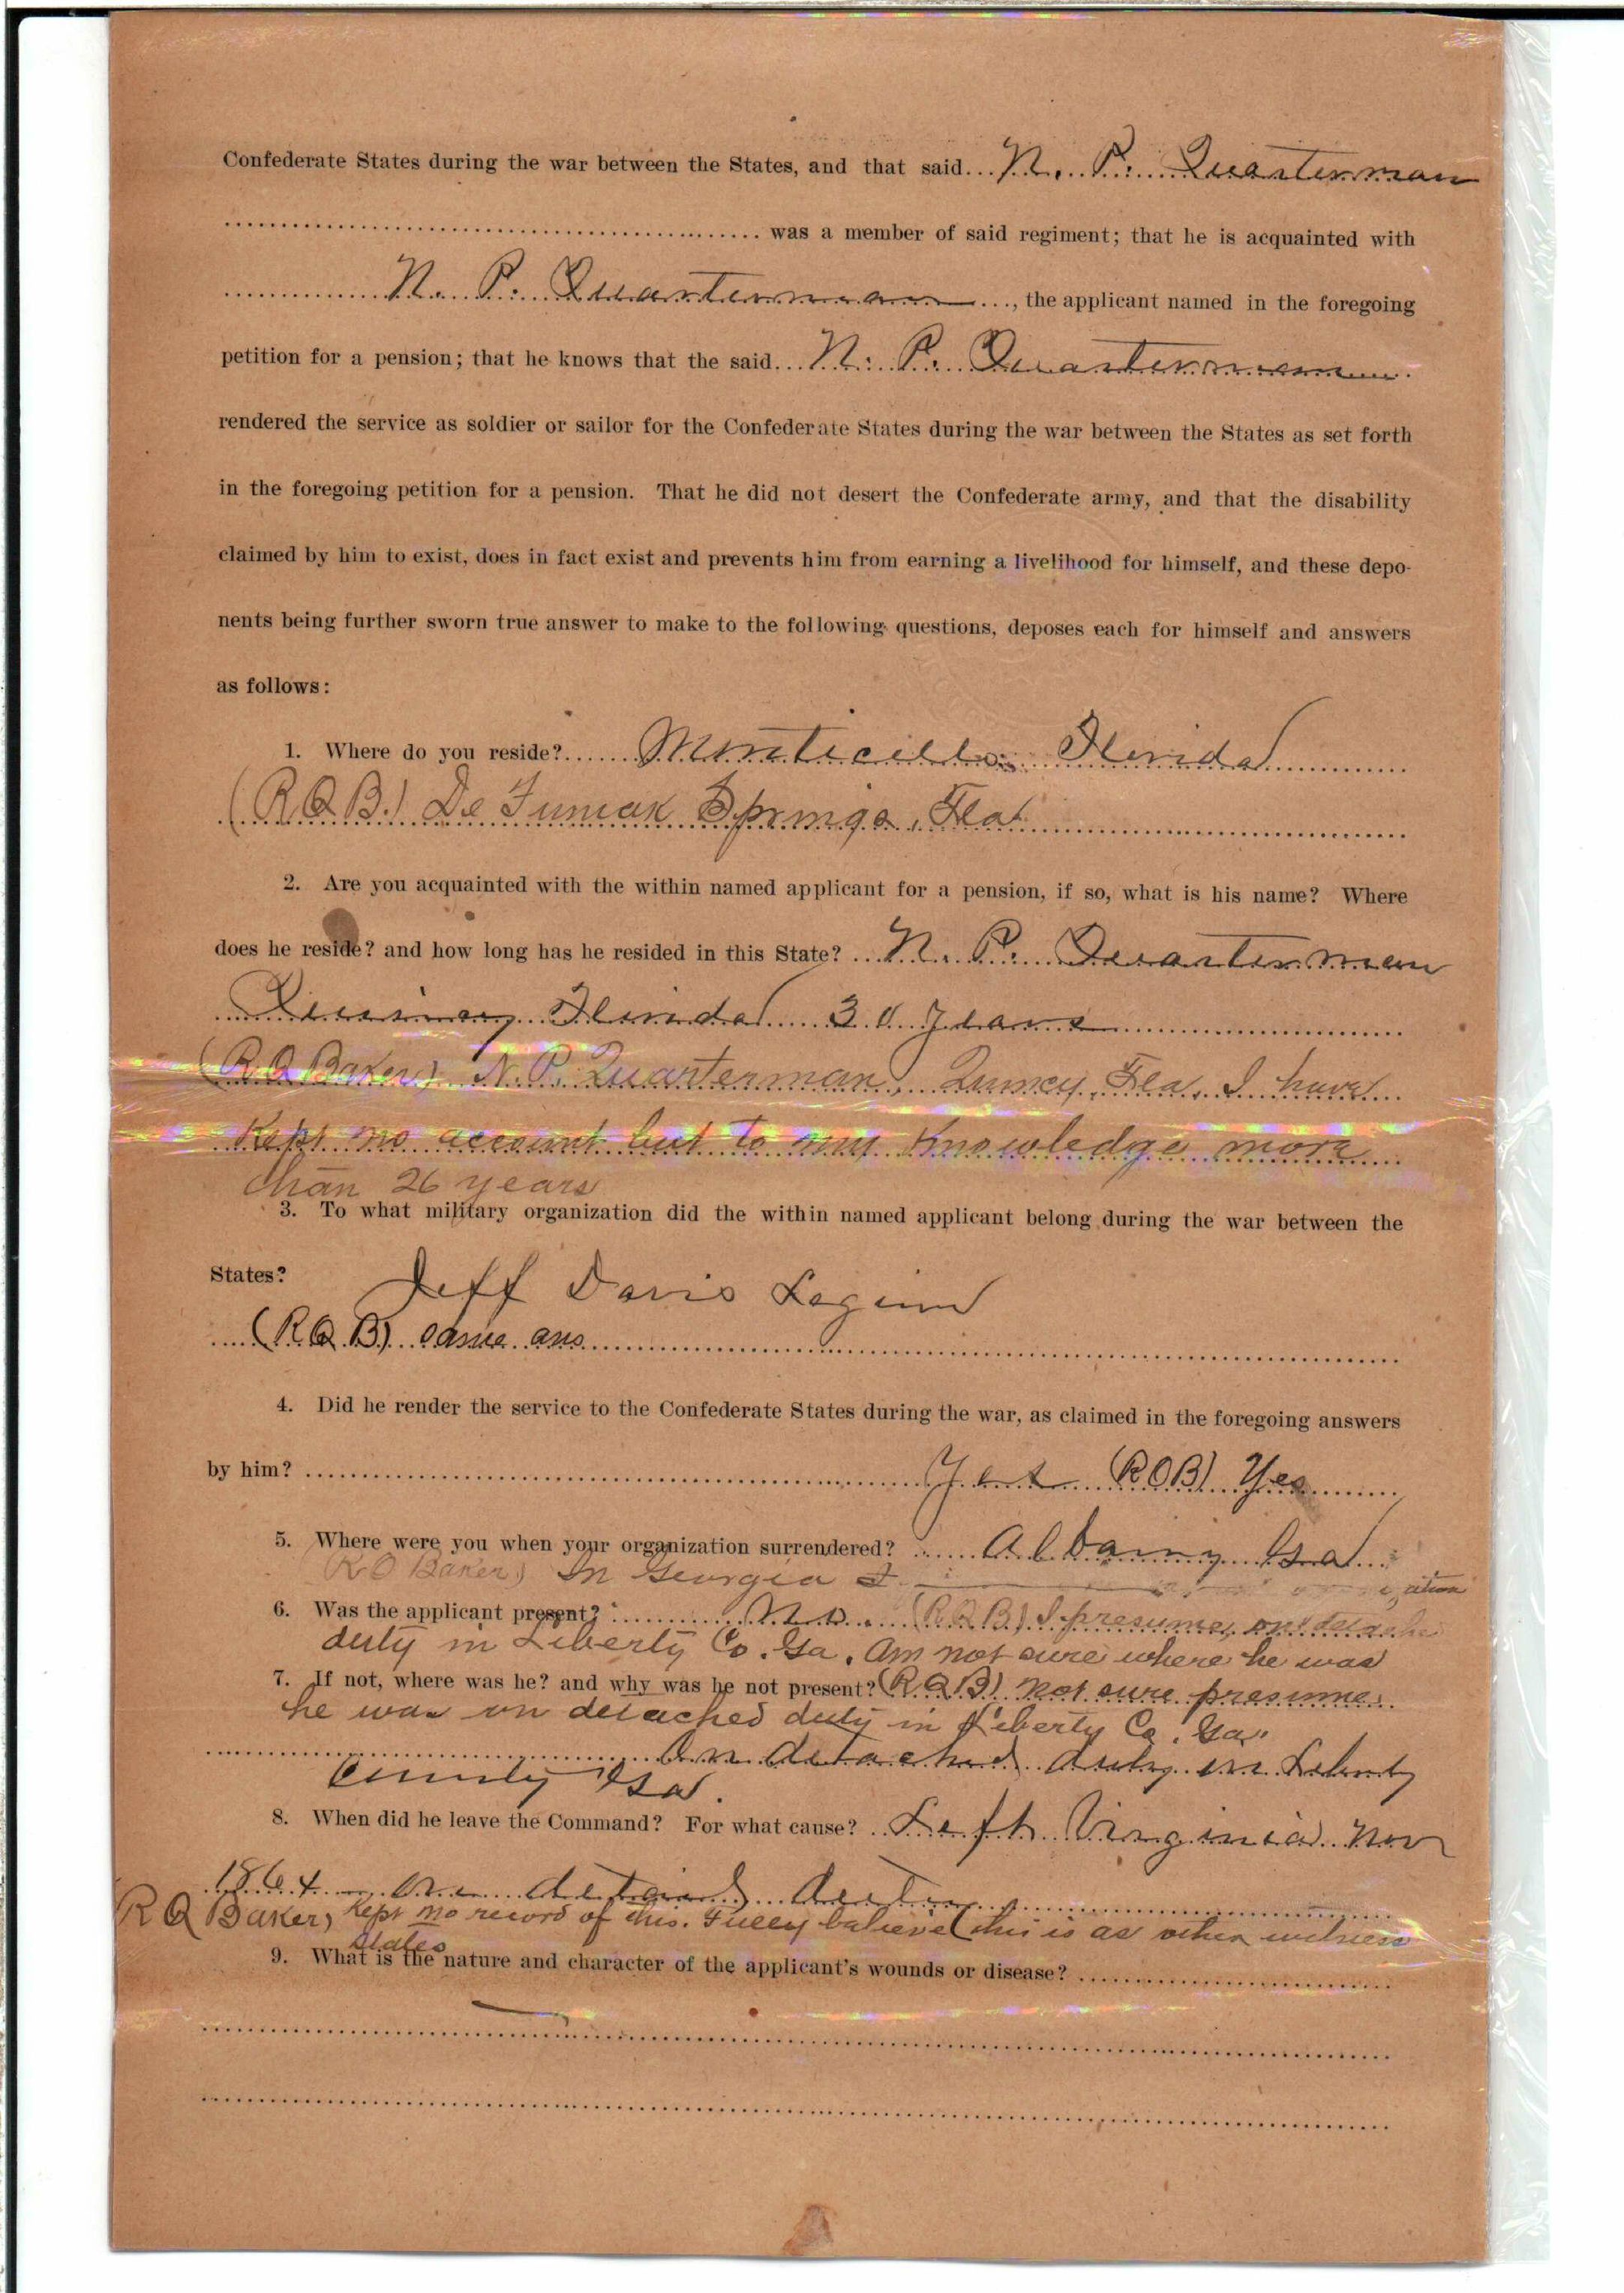 Confederate States during the war between the States, and that said... N. P. Quarterman
was a member of said regiment; that he is acquainted with
N. P. Quarterman ..., the applicant named in the foregoing
petition for a pension; that he knows that the said... N. P. Quarterman
rendered the service as soldier or sailor for the Confederate States during the war between the States as set forth
in the foregoing petition for a pension. That he did not desert the Confederate army, and that the disability
claimed by him to exist, does in fact exist and prevents him from earning a livelihood for himself, and these depo-
nents being further sworn true answer to make to the following questions, deposes each for himself and answers
as follows:
1. Where do you reside? Monticello Florida
(R Q B.) De Funiak Springs, Fla
2. Are you acquainted with the within named applicant for a pension, if so, what is his name? Where
does he reside? and how long has he resided in this State? N. P. Quarterman
Quincy Florida 30 years
(R Q Baker) N. P. Quarterman, Quincy, Fla, I have
kept no account but to my knowledge more
than 26 years
3. To what military organization did the within named applicant belong during the war between the
States? Jeff Davis Legion
(R Q B) same ans
4. Did he render the service to the Confederate States during the war, as claimed in the foregoing answers
by him? Yes (R Q B) Yes
5. Where were you when your organization surrendered? Albany Ga
R Q Baker) In Georgia
6. Was the applicant present? No. (R Q B) I presume, on detached
duty in Liberty Co. Ga. Am not sure where he was
7. If not, where was he? and why was he not present? (R Q B) not sure presume
he was on detached duty in Liberty Co. Ga"
On detached duty in Liberty
County Ga.
8. When did he leave the Command? For what cause? Left Virginia Nov
1864 on detail duty
R Q Baker, kept no record of this. Fully believe this is as other witness
states
9. What is the nature and character of the applicant's wounds or disease?